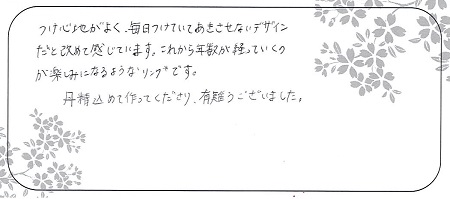 つけ心地がよく、毎日つけていてあきさせないデザイン
だと改めて感じています。これから年数が経っていくの
が楽しみになるようなリングです。
丹精込めて作ってくださり、有難うございました。